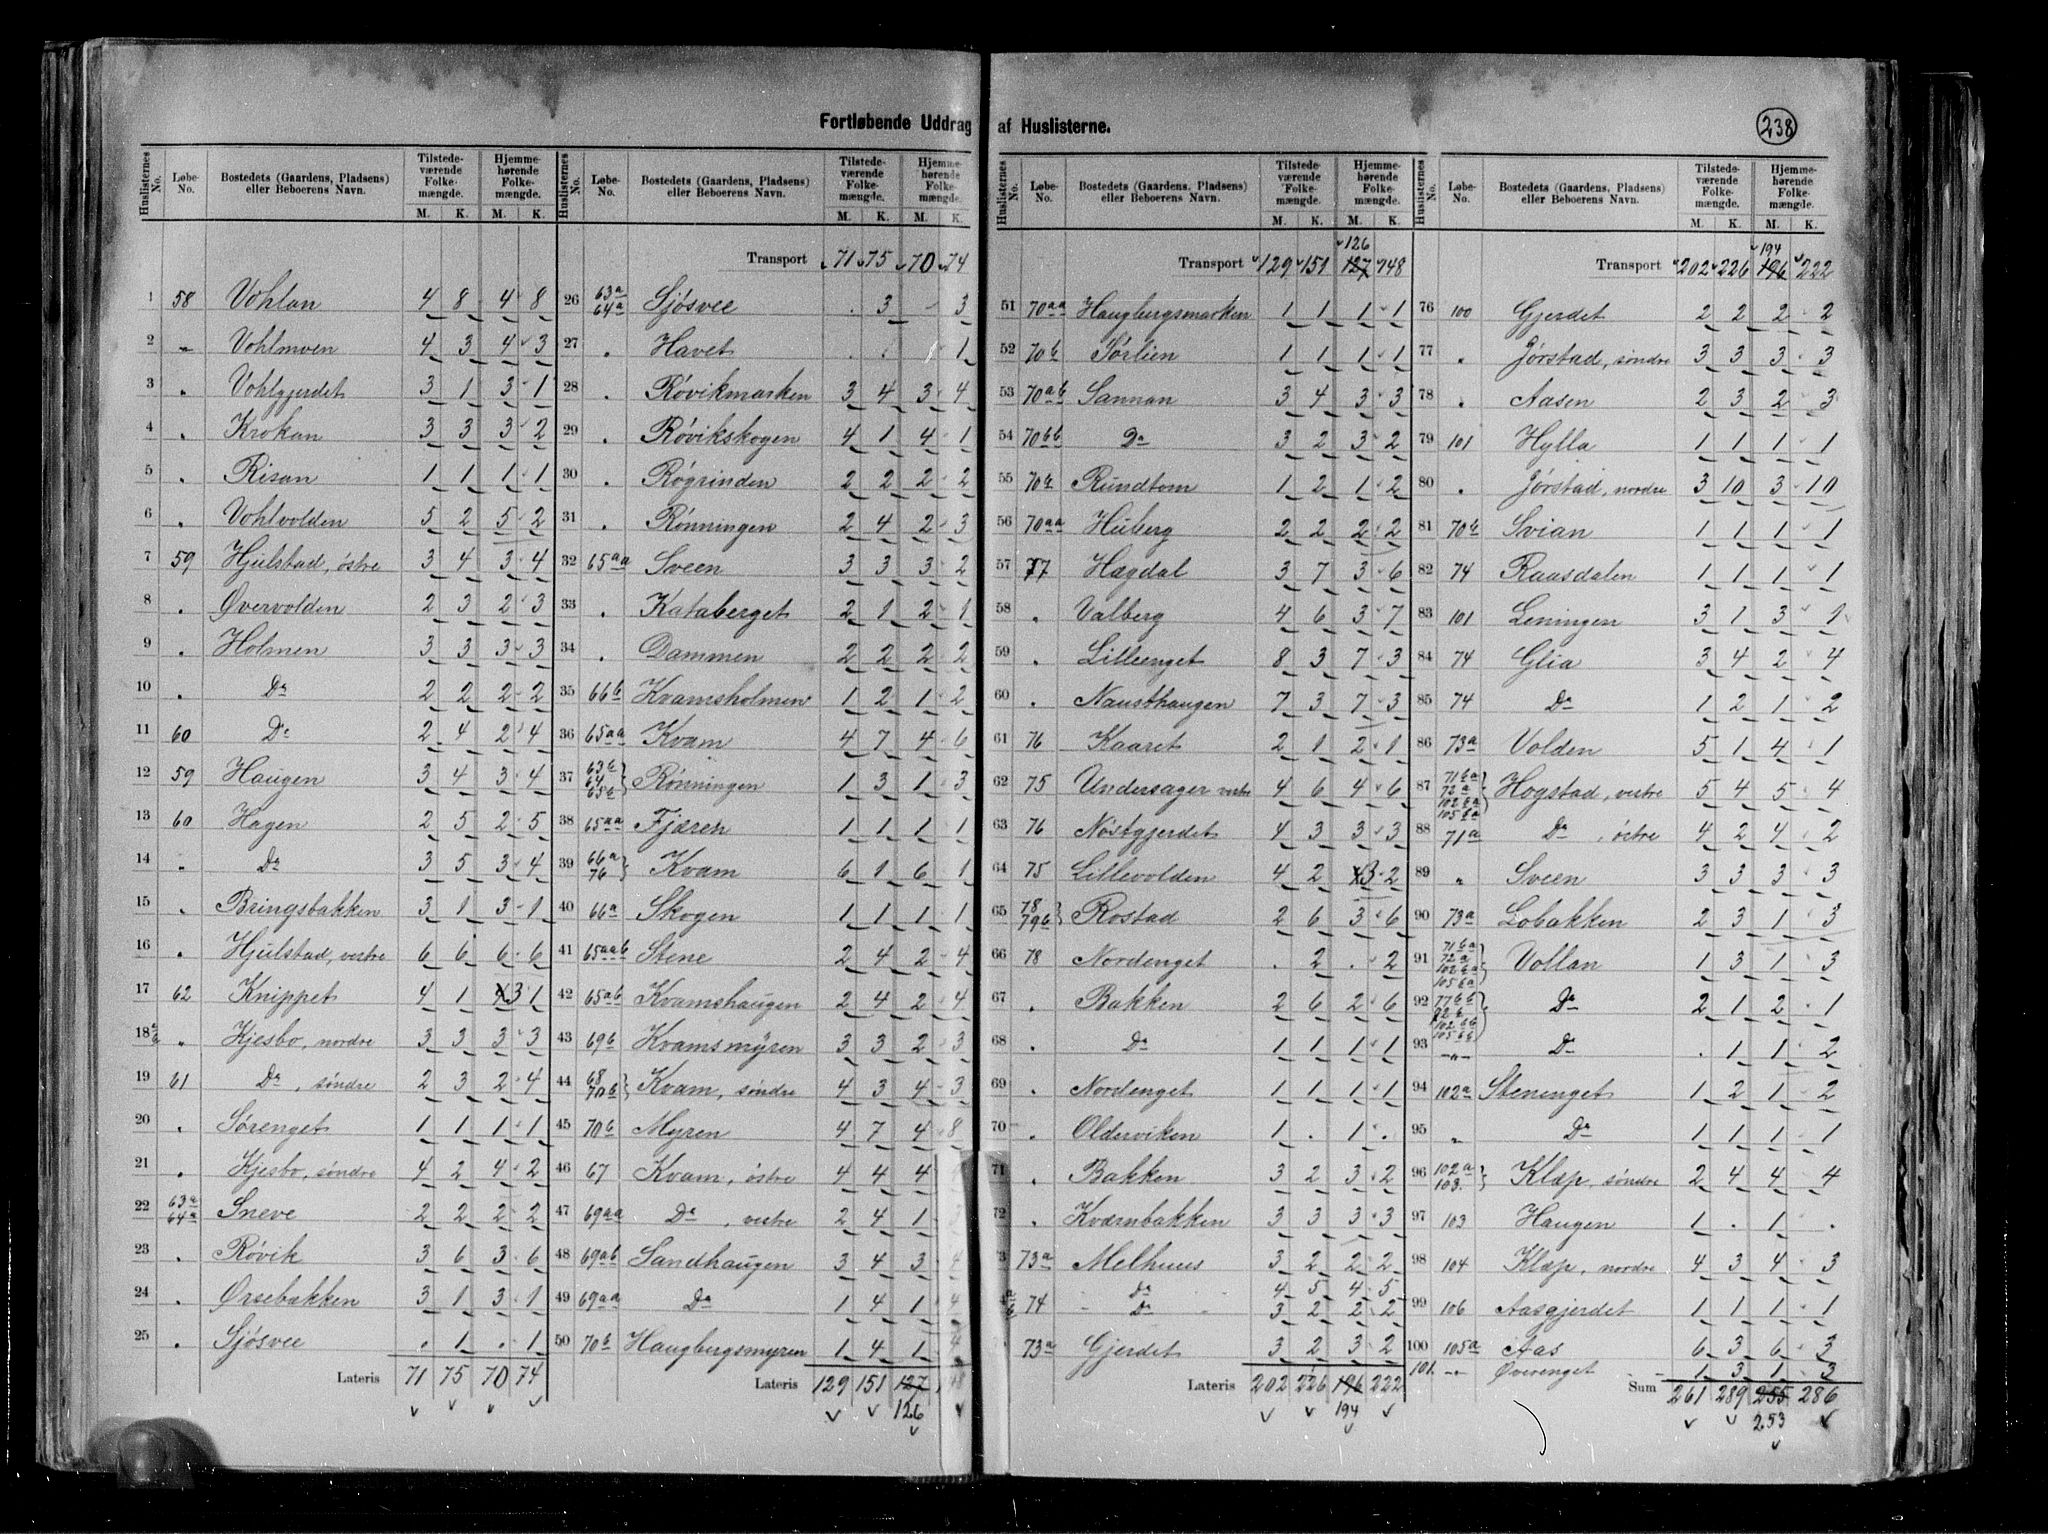 Fortløbende Uddrag af Huslisterne.
238
Huslisternes No. Løbe-No. Bostedets (Gaardens, Pladsens) eller Beboerens Navn. Tilstede-værende Folke-mængde. M. K. Hjemme-hørende Folke-mængde. M. K.
1 58 Vohlan 4 8 4 8
2 „ Vohlmoen 4 3 4 3
3 „ Vohlgjerdet 3 1 3 1
4 „ Krokan 3 3 3 2
5 „ Risan 1 1 1 1
6 „ Vohlvolden 5 2 5 2
7 59 Hjulstad, östre 3 4 3 4
8 „ Øvervolden 2 3 2 3
9 „ Holmen 3 3 3 3
10 „ Do 2 2 2 2
11 60 Do 2 4 2 4
12 59 Haugen 3 4 3 4
13 60 Hagen 2 5 2 5
14 „ Do 3 5 3 4
15 „ Bringsbakken 3 1 3 1
16 „ Hjulstad, vestre 6 6 6 6
17 62 Knippet 4 1 3 1
18 „ Kjesbo, nordre 3 3 3 3
19 61 Do, söndre 2 3 2 4
20 „ Sörenget 1 1 1 1
21 „ Kjesbo, söndre 4 2 4 2
22 63a 64a Sneve 2 2 2 2
23 „ Rövik 3 6 3 6
24 „ Ørsebakken 3 1 3 1
25 „ Sjösvee . 1 . 1
Lateris 71 75 70 74
Huslisternes No. Løbe-No. Bostedets (Gaardens, Pladsens) eller Beboerens Navn. Tilstede-værende Folke-mængde. M. K. Hjemme-hørende Folke-mængde. M. K.
Transport 71 75 70 74
26 63a 64a Sjösvee . 3 - 3
27 „ Havet . . 1
28 „ Rövikmarken 3 4 3 4
29 „ Rövikskogen 4 1 4 1
30 „ Rögrinden 2 2 2 2
31 „ Rönningen 2 4 2 3
32 65aa Sveen 3 3 3 2
33 „ Kataberget 2 1 2 1
34 „ Dammen 2 2 2 2
35 66b Kvamsholmen 1 2 1 2
36 65aa Kvam 4 7 4 6
37 63b 64 65b Rönningen 1 3 1 3
38 65aa Fjæren 1 1 1 1
39 66a 76 Kvam 6 1 6 1
40 66a Skogen 1 1 1 1
41 65aab Stene 2 4 2 4
42 65ab Kvamshaugen 2 4 2 4
43 69b Kvamsmyren 3 3 2 3
44 68 70b Kvam, söndre 4 3 4 3
45 70b Myren 4 7 4 8
46 67 Kvam, östre 4 4 4
47 69aa Do, vestre 2 4 1 3
48 69ab Sandhaugen 3 4 3 4
49 69aa Do 1 4 1 4
50 70b Haugbergsmyren 1 4 1 4
Lateris 129 151 127
126
Huslisternes No. Løbe-No. Bostedets (Gaardens, Pladsens) eller Beboerens Navn. Tilstede-værende Folke-mængde. M. K. Hjemme-hørende Folke-mængde. M. K.
126
Transport 129 151 127 148
51 70aa Haugbergsmarken 1 1 1 1
52 70b Sörlien 1 1 1 1
53 70ab Sannan 3 4 3 3
54 70bb Do 3 2 3 2
55 70b Rundtom 1 2 1 2
56 70aa Huberg 2 2 2 2
57 77 Hægdal 3 7 3 6
58 „ Valberg 4 6 3 7
59 „ Lilleenget 8 3 7 3
60 „ Nausthaugen 7 3 7 3
61 76 Kaaret 2 1 2 1
62 75 Undersager vestre 4 6 4 6
63 76 Nöstgjerdet 4 3 3 3
64 75 Lillevolden 4 2 3 2
65 78 79b Rostad 2 6 3 6
66 78 Nordenget . 2 . 2
67 „ Bakken 2 6 2 6
68 „ Do 1 1 1 1
69 „ Nordenget 1 1 1 1
70 „ Olderviken 1 . 1 .
71 „ Bakken 3 2 3 2
72 „ Kværnbakken 3 3 3 3
3 73a Melhuus 3 2 2 2
Do 4 5 4 5
74 Do 3 2 2 2
73a Gjerdet 3 2 3 2
Lateris 202 226 196 222
194
Huslisternes No. Løbe-No. Bostedets (Gaardens, Pladsens) eller Beboerens Navn. Tilstede-værende Folke-mængde. M. K. Hjemme-hørende Folke-mængde. M. K.
194
Transport 202 226 196 222
76 100 Gjerdet 2 2 2 2
77 „ Jörstad, söndre 3 3 3 3
78 „ Aasen 2 3 2 3
79 101 Hylla 1 1 1 1
80 „ Jörstad, nordre 3 10 3 10
81 70b Svian 1 1 1 1
82 74 Raasdalen 1 1 1 1
83 101 Leningen 3 1 3 1
84 74 Glia 3 4 2 4
85 74 Do 1 2 1 2
86 73a Volden 5 1 4 1
87 71ba 72a 102ba 105ba Hogstad, vestre 5 4 5 4
88 71a Do, östre 4 2 4 2
89 „ Sveen 3 3 3 3
90 73a Lobakken 2 3 1 3
91 71ba 72a 102ba 105ba Vollan 1 3 1 3
92 77bb 72b 102bb 105bb Do 2 1 2 1
93 -„- Do . 1 1 2
94 102a Stenenget 1 2 1 2
95 „ Do 1 1 1 1
96 102a 103. Klæp, söndre 2 4 4 4
97 103 Haugen 1 . 1 .
98 104 Klæp, nordre 4 3 4 3
99 106 Aasgjerdet 1 1 1 1
100 105a Aas 6 3 6 3
101. -„- Øverenget 1 3 1 3
Sum 261 289 255 286
253